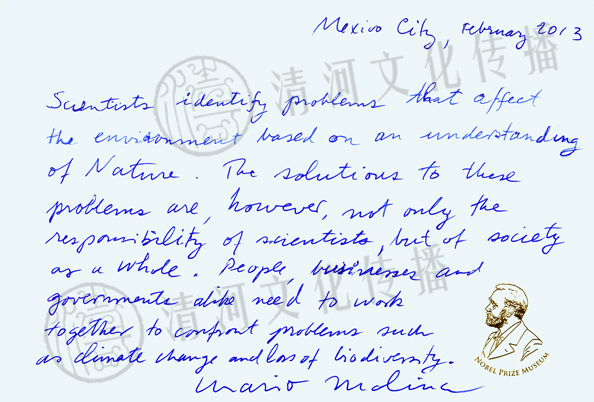 Mexico City, February 2013
Scientists identify problems that affect
the environment based on an understanding
of Nature. The solutions to these
problems are, however, not only the
responsibility of scientists, but of society
as a whole. People, businesses and
governments alike need to work
together to confront problems such
as climate change and loss of biodiversity.
Mario Molina
NOBEL PRIZE MUSEUM
清河文化传播
清河文化传播